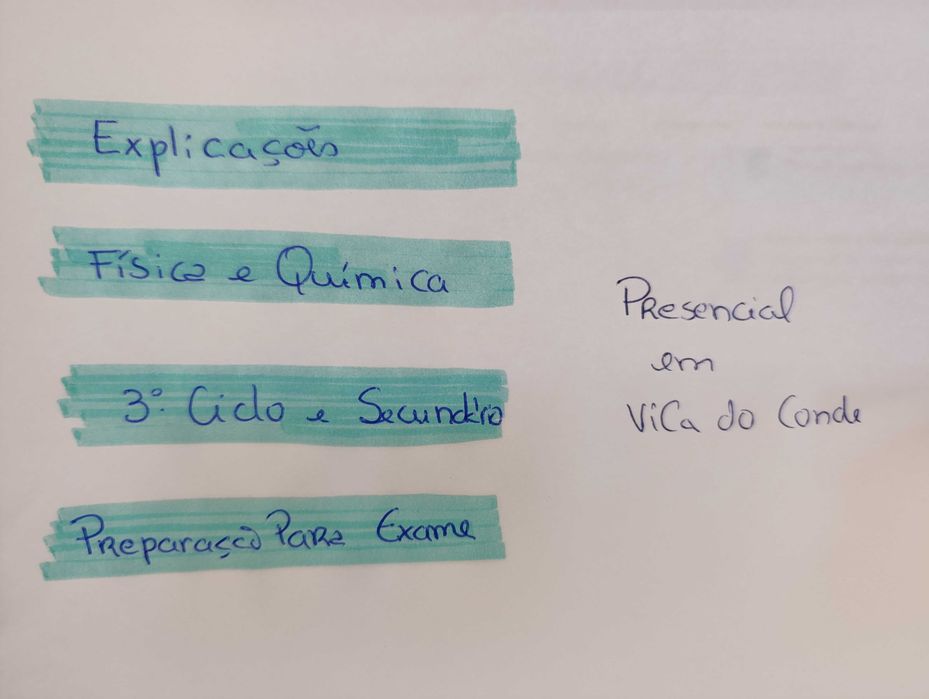 Explicações
Física e Química
3º Ciclo e Secundário
Preparação Para Exame
Presencial
em
Vila do Conde